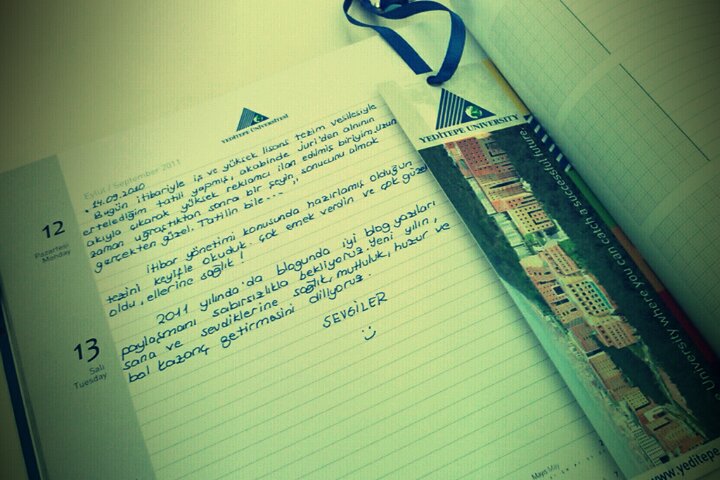 YEDİTEPE ÜNİVERSİTESİ
Eylül / September 2011
• 14.09.2010
• Bugün itibariyle iş ve yüksek lisans tezim vesilesiyle
ertelediğim tatili yapmış, akabinde Juri'den alnının
akıyla çıkarak yüksek reklamcı ilan edilmiş biriyim. Uzun
zaman uğraştıktan sonra bir şeyin, sonucunu almak
gerçekten güzel. Tatilin bile... ;)
itibar yönetimi konusunda hazırlamış olduğun
tezini keyifle okuduk. Çok emek verdin ve çok güzel
oldu, ellerine sağlık!
2011 yılında'da blogunda iyi blog yazıları
paylaşmanı sabırsızlıkla bekliyoruz. Yeni yılın,
sana ve sevdiklerine sağlık, mutluluk, huzur ve
bol kazanç getirmesini diliyoruz.
SEVGİLER
12
Pazartesi
Monday
13
Salı
Tuesday
Mayıs May
YEDİTEPE UNIVERSITY
University where you can catch a successful future
www.yeditepe